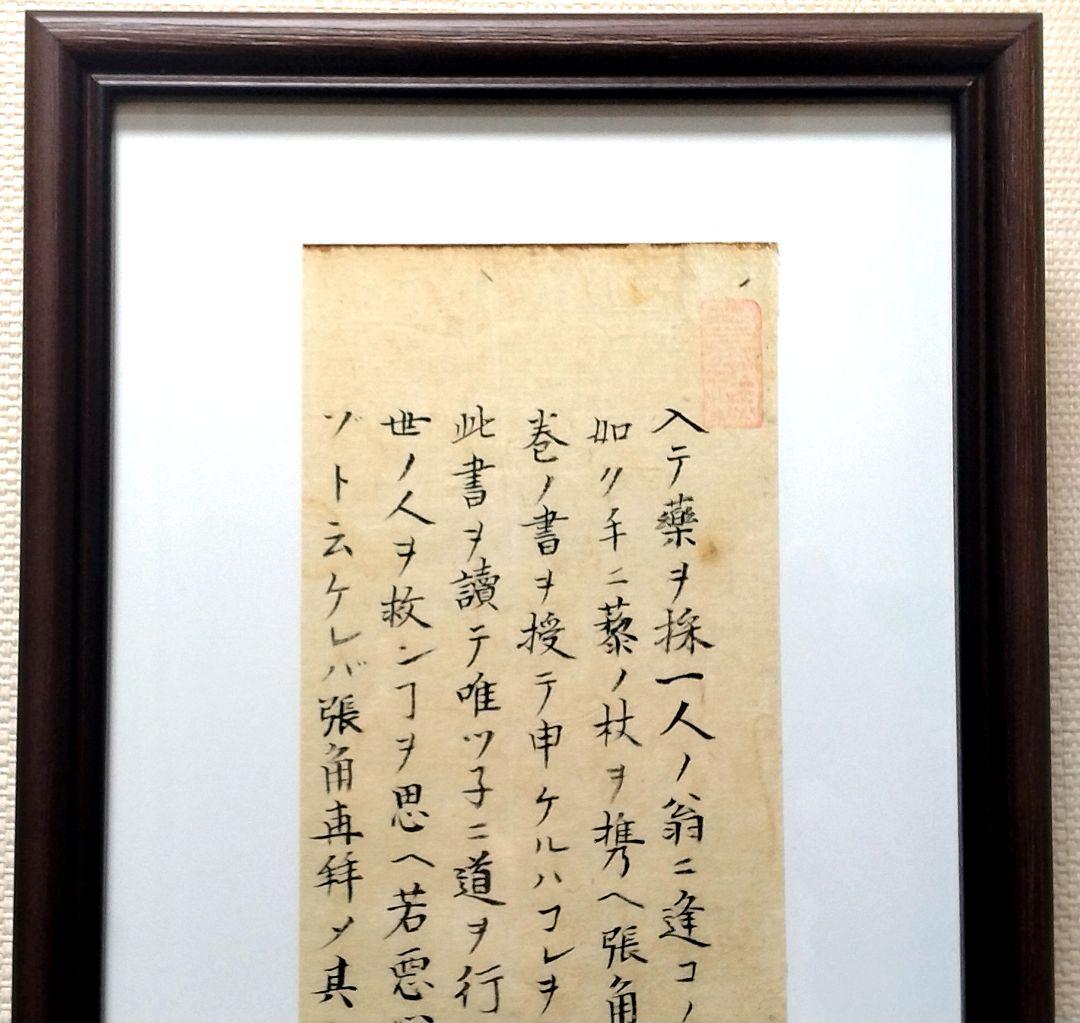 入テ藥ヲ採一人ノ翁ニ逢コノ
如ク手ニ藜ノ杖ヲ携ヘ張角
巻ノ書ヲ授テ申ケルハコレヲ
此書ヲ讀テ唯ツ子ニ道ヲ行
世ノ人ヲ救ンヿヲ思ヘ若悪
ゾト云ケレバ張角再拜〆其